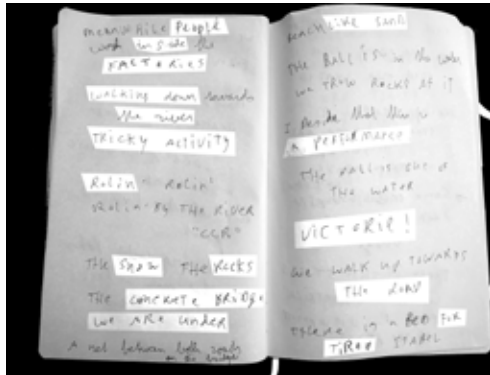 meanwhile People
work inside the
FACTORIES
walking down towards
the river
TRICKY ACTIVITY
Rolin' Rolin'
Rolin' By THE RIVER
"CCR"
THE Snow THE ROCKS
THE CONCRETE BRIDGE
we ARE under
A net between both roads
on the bridge
BEACH LIKE SAND
THE BALL IS in the water
we THROW ROCKS AT IT
I Decide that this is
A PERFORMANCE
THE BALL IS out of
THE WATER
VICTORIE!
we WALK UP TOWARDS
THE ROAD
THERE is a BED FOR
TIRED